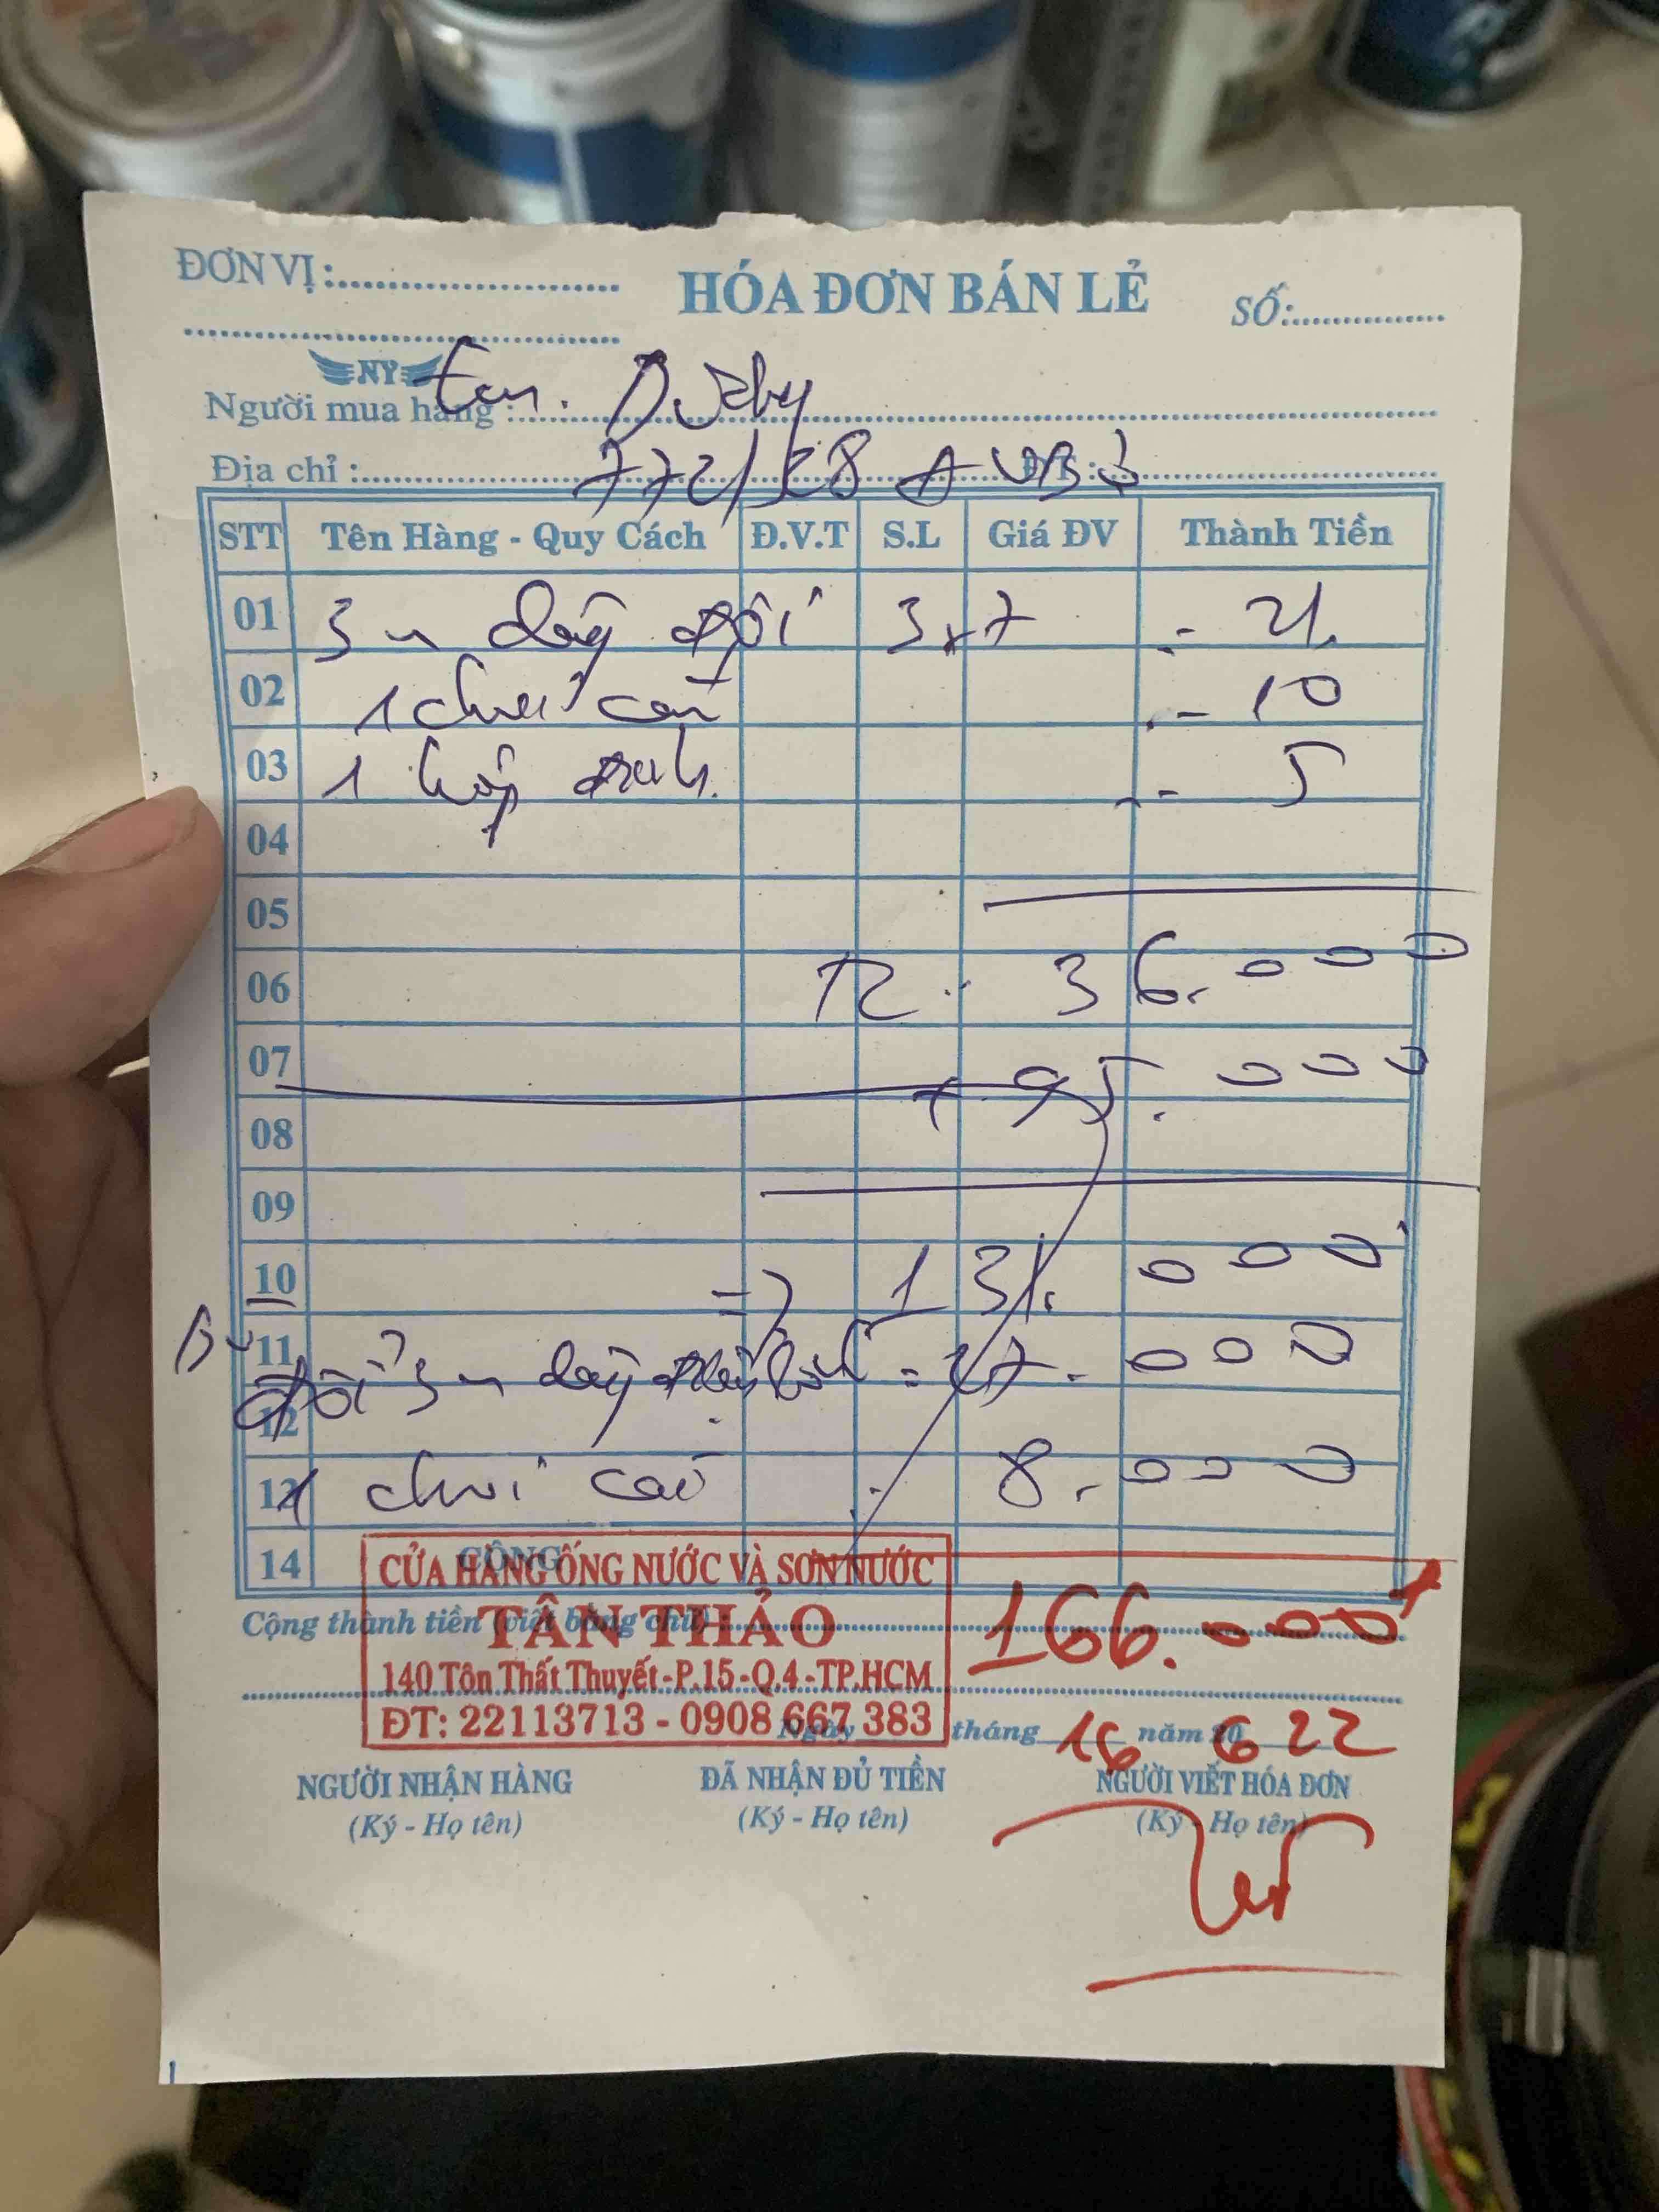 ĐƠN VỊ:
HÓA ĐƠN BÁN LẺ
SỐ:
NY
Người mua hàng :
Địa chỉ : 772/ 28 A
STT Tên Hàng - Quy Cách Đ.V.T S.L Giá ĐV Thành Tiền
01 3 m dây đôi 3x7 = 21.
02 1 chui cài = 10
03 1 hộp = 5
04
05
06 TC : 36.000
07 + 95.000
08
09
10 => 131.000
11 Bù đổi 3 m dây = 27.000
12
13 1 chui cài : 8.000
14 CỘNG
CỬA HÀNG ỐNG NƯỚC VÀ SƠN NƯỚC
TÂN THẢO
140 Tôn Thất Thuyết-P.15-Q.4-TP.HCM
ĐT: 22113713 - 0908 667 383
Cộng thành tiền (viết bằng chữ) : 166.000đ
Ngày tháng 16 năm 20 6 22
NGƯỜI NHẬN HÀNG
(Ký - Họ tên)
ĐÃ NHẬN ĐỦ TIỀN
(Ký - Họ tên)
NGƯỜI VIẾT HÓA ĐƠN
(Ký - Họ tên)